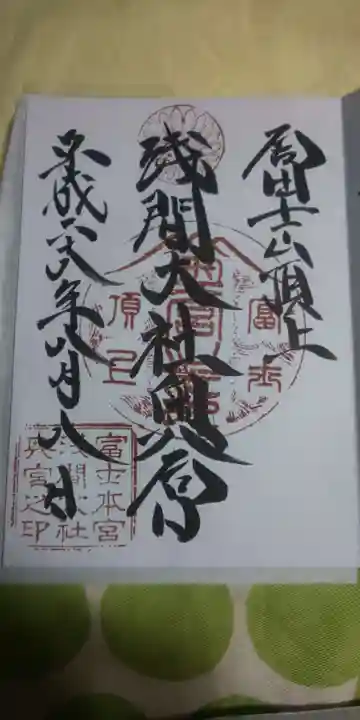 富士山頂上
淺間大社奥宮
平成年八月八日
富士
頂上
富士本宮
浅間大社
奥宮之印